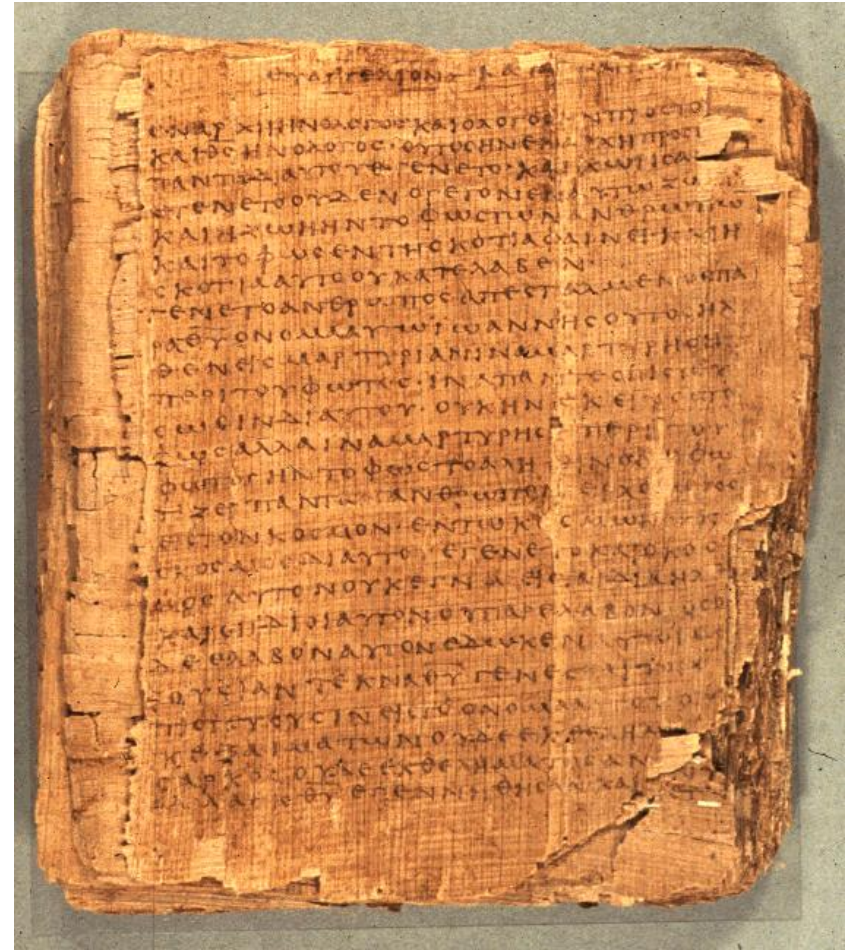 ΕΥΑΓΓΕΛΙΟΝ ΚΑΤΑ
ΕΝΑΡΧΗΗΝΟΛΟΓΟϹΚΑΙΟΛΟΓΟϹΗΝΠΡΟϹΤΟ
ΚΑΙΘϹΗΝΟΛΟΓΟϹ·ΟΥΤΟϹΗΝΕΝΑΡΧΗΠΡΟϹΤ
ΠΑΝΤΑΔΙΑΥΤΟΥΕΓΕΝΕΤΟ·ΚΑΙΧΩΡΙϹΑ
ΕΓΕΝΕΤΟΟΥΔΕΝΟΓΕΓΟΝΕΝΑΥΤΩΖΩ
ΚΑΙΗΖΩΗΗΝΤΟΦΩϹΤΩΝΑΝΘΡΩΠΩ
ΚΑΙΤΟΦΩϹΕΝΤΗϹΚΟΤΙΑΦΑΙΝΕΙΚΑΙΗ
ϹΚΟΤΙΑΑΥΤΟΟΥΚΑΤΕΛΑΒΕΝ·
ΕΓΕΝΕΤΟΑΝΘΡΩΠΟϹΑΠΕϹΤΑΛΜΕΝΟϹΠΑ
ΡΑΘΥΟΝΟΜΑΑΥΤΩΙΩΑΝΝΗϹΟΥΤΟϹΗΛ
ΘΕΝΕΙϹΜΑΡΤΥΡΙΑΝΙΝΑΜΑΡΤΥΡΗϹΗ
ΠΕΡΙΤΟΥΦΩΤΟϹ·ΙΝΑΠΑΝΤΕϹΠΙϹΤΕΥ
ϹΩϹΙΝΔΙΑΥΤΟΥ·ΟΥΚΗΝΕΚΕΙΝΟϹΤΟ
ΦΩϹΑΛΛΑΙΝΑΜΑΡΤΥΡΗϹΗΠΕΡΙΤΟΥ
ΦΩΤΟϹΗΝΤΟΦΩϹΤΟΑΛΗΘΙΝΟΝΟΦΩ
ΤΙΖΕΙΠΑΝΤΑΑΝΘΡΩΠΟΝΕΡΧΟ
ΕΙϹΤΟΝΚΟϹΜΟΝ·ΕΝΤΩΚΟϹΜΩΗΝΚ
ΟΚΟϹΜΟϹΔΙΑΥΤΟΥΕΓΕΝΕΤΟΚΑΙΟΚΟϹ
ΜΟϹΑΥΤΟΝΟΥΚΕΓΝΩΕΙϹΤΑΙΔΙΑΗΛ
ΚΑΙΟΙΙΔΙΟΙΑΥΤΟΝΟΥΠΑΡΕΛΑΒΟΝ ΟϹΟΙ
ΔΕΕΛΑΒΟΝΑΥΤΟΝΕΔΩΚΕΝΑΥΤΟΙϹΕ
ΞΟΥϹΙΑΝΤΕΚΝΑΘΥΓΕΝΕϹΘΑΙΤΟΙϹ
ΠΙϹΤΕΥΟΥϹΙΝΕΙϹΤΟΟΝΟΜΑΑΥΤΟΥΟΙ
ΚΕΞΑΙΜΑΤΩΝΟΥΔΕΕΚΘΕΛΗΜΑ
ϹΑΡΚΟϹΟΥΔΕΕΚΘΕΛΗΜΑΤΟϹΑΝ
ΑΛΛΑΕΚΘΥΕΓΕΝΝΗΘΗϹΑΝΚΑΙ